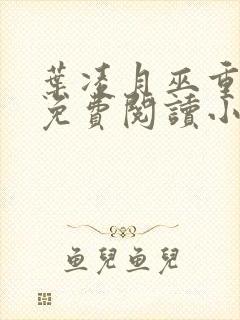 葉凌月巫重
免費閱讀小
魚兒魚兒